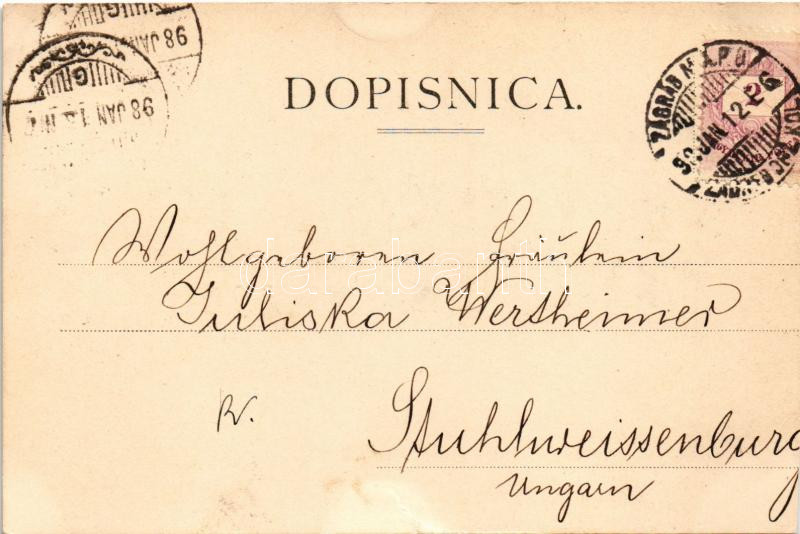 98 JAN
98 JAN
DOPISNICA.
ZÁGRÁB M.Á.P.U.
98 JAN. 12
2
Wohlgeboren Fräulein
Juliska Wertheimer
Stuhlweissenburg
Ungarn
darabanth